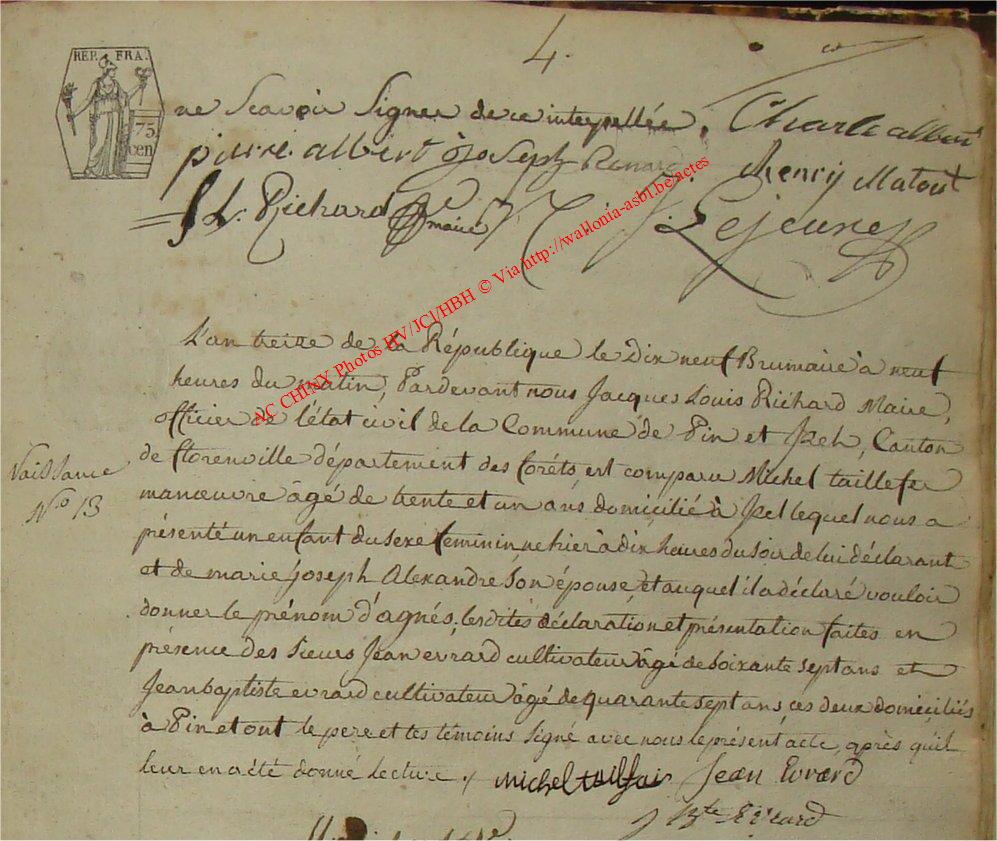 4.
REP. FRA.
75.
cen.
ne Scavoir Signer de ce interpellée. Charle albert
pierre albert Joseph Renard Henry Matout
J. L. Richard maire J. Lejeune
NC CHINY Photos HV/JCl/HBH © Via http://wallonia-asbl.be/actes
L'an treize de la République le Dix neuf Brumaire à neuf
heures du matin, Pardevant nous Jacques Louis Richard Maire,
officier de l'état civil de la Commune de Pin et Izel, Canton
Naissance
N° 13
de florenville département des forêts est comparu Michel taillefer
manœuvre âgé de trente et un ans domicilié à Izel lequel nous a
présenté un enfant du sexe feminin né hier à dix heures du soir de lui déclarant
et de marie joseph Alexandre son épouse et auquel il a déclaré vouloir
donner le prénom d'agnés. lesdites déclaration et présentation faites en
présence des Sieurs Jean evrard cultivateur âgé de soixante sept ans et
Jean baptiste evrard cultivateur âgé de quarante sept ans ces deux domiciliés
à Pin et ont le pere et les témoins signé avec nous le présent acte, après qu'il
leur en a été donné lecture. Michel Jean Evrard
J Bte Evrard